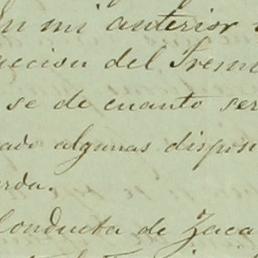 n mi anterior
ección del Trem
se de cuanto ser
ado algunas dispos
erda.
Conducta de Zaca